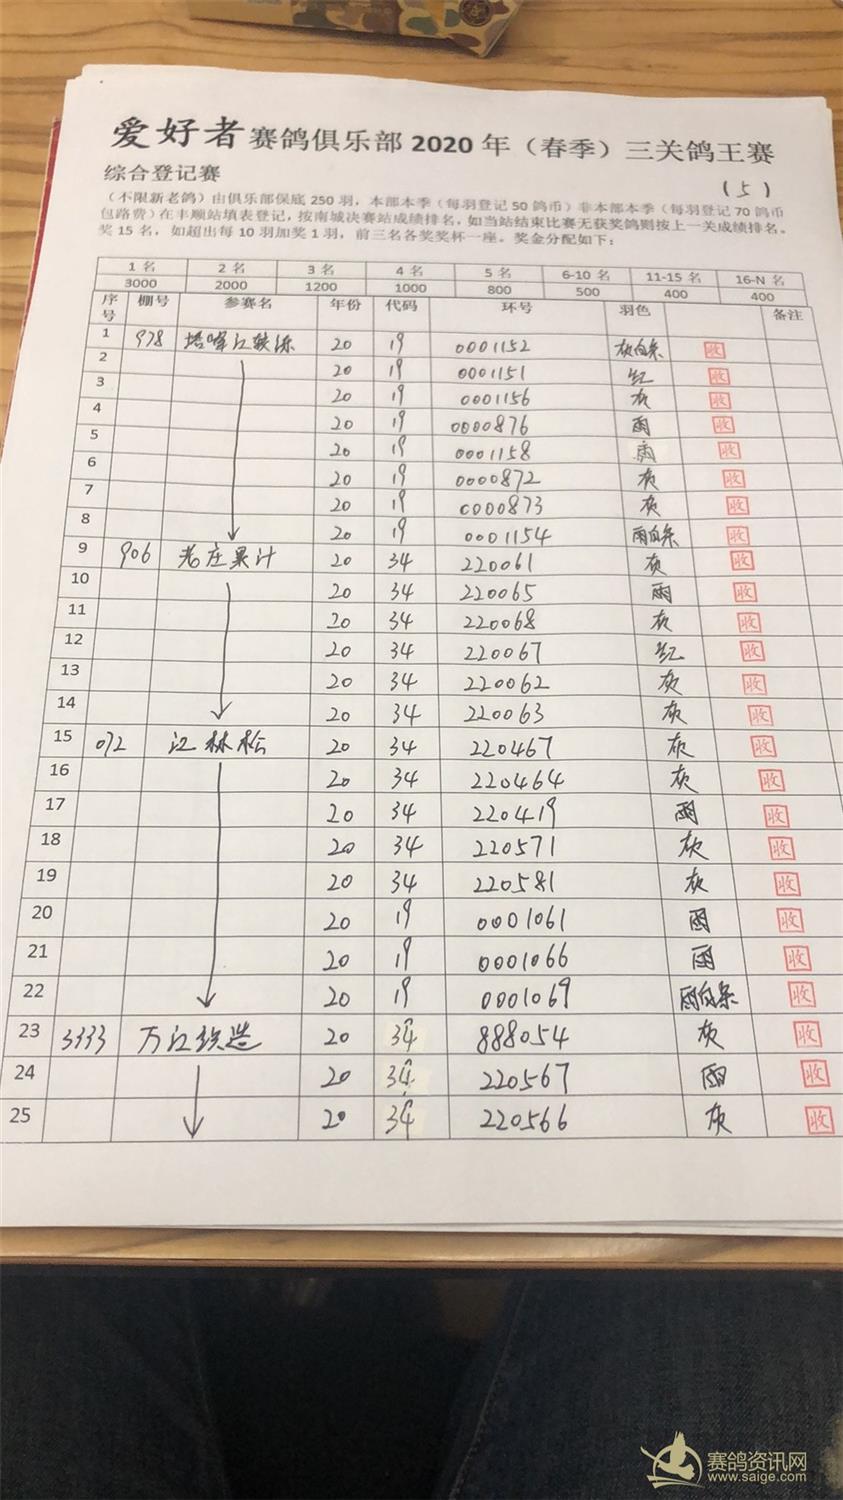 爱好者赛鸽俱乐部2020年（春季）三关鸽王赛
综合登记赛
(5)
（不限新老鸽）由俱乐部保底250羽，本部本季（每羽登记50鸽币）非本部本季（每羽登记70鸽币
包路费）在丰顺站填表登记，按南城决赛站成绩排名，如当站结束比赛无获奖鸽则按上一关成绩排名。
奖15名，如超出每10羽加奖1羽，前三名各奖奖杯一座。奖金分配如下：
1名 2名 3名 4名 5名 6-10名 11-15名 16-N名
3000 2000 1200 1000 800 500 400 400
序号 棚号 参赛名 年份 代码 环号 羽色 备注
1 978 塔峰江 20 19 0001152 灰白条 收
2 20 19 0001151 红 收
3 20 19 0001156 灰 收
4 20 19 0000876 雨 收
5 20 19 0001158 雨 收
6 20 19 0000872 灰 收
7 20 19 0000873 灰 收
8 20 19 0001154 雨白条 收
9 906 老庄累计 20 34 220061 灰 收
10 20 34 220065 雨 收
11 20 34 220068 灰 收
12 20 34 220067 红 收
13 20 34 220062 灰 收
14 20 34 220063 灰 收
15 072 江林松 20 34 220467 灰 收
16 20 34 220464 灰 收
17 20 34 220419 雨 收
18 20 34 220571 灰 收
19 20 34 220581 灰 收
20 20 19 0001061 雨 收
21 20 19 0001066 雨 收
22 20 19 0001069 雨白条 收
23 3333 万江铁造 20 34 888054 灰 收
24 20 34 220567 雨 收
25 20 34 220566 灰 收
赛鸽资讯网
www.saige.com